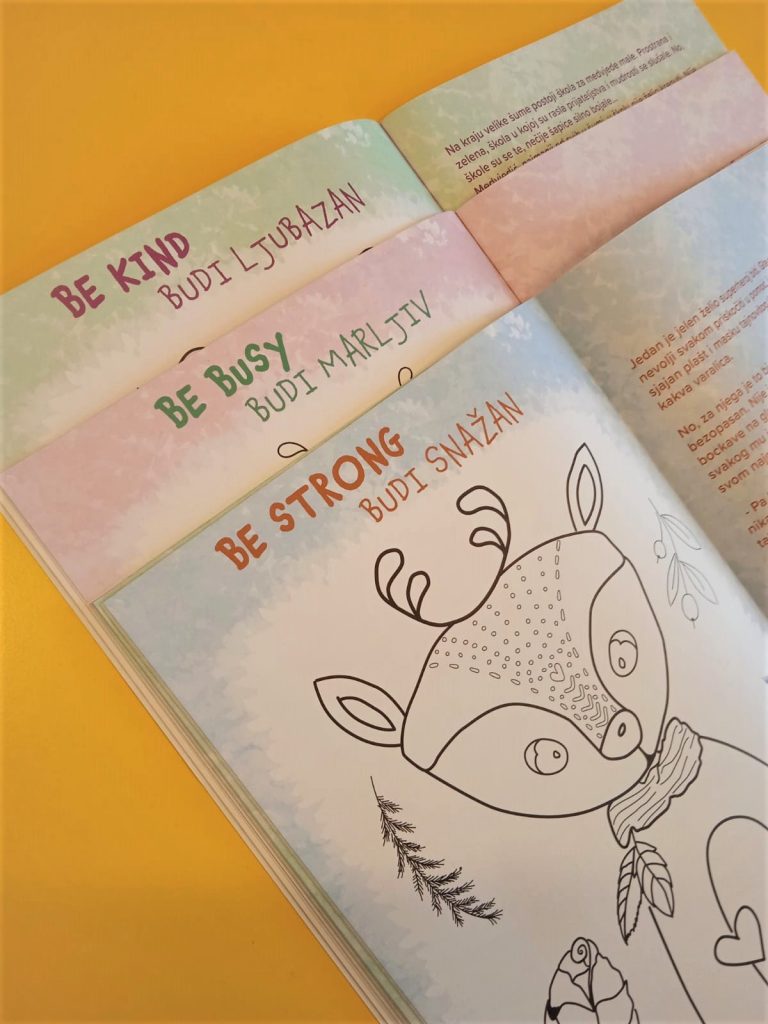 BE KIND
BUDI LJUBAZAN
Na kraju velike šume postoji škola za medvjede male. Prostrana i
zelena, škola u kojoj su rasla prijateljstva i mudrosti se slušale. No,
škole su se te, nečije šapice silno bojale...
BE BUSY
BUDI MARLJIV
BE STRONG
BUDI SNAŽAN
Jedan je jelen želio superheroj biti.
nevolji svakom priskočiti u pomoć
sjajan plašt i masku tajnovitog
kakva varalica.
No, za njega je to bi
bezopasan. Nije
bockave na gl
svakog mu
svom naj
- Pa
nika
ta